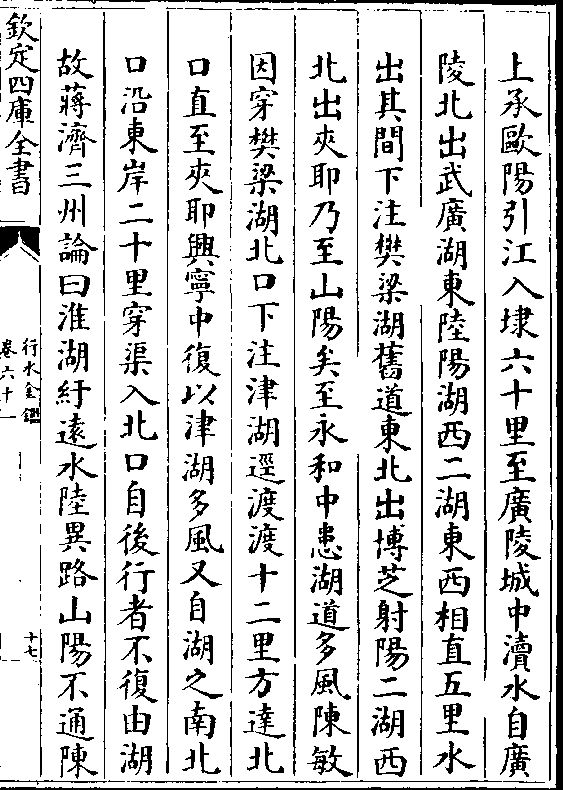 上承歐陽引江入埭六十里至廣陵城中瀆水自廣
陵北出武廣湖東陸陽湖西二湖東西相直五里水
出其間下注樊梁湖舊道東北出博芝射陽二湖西
北出夾耶乃至山陽矣至永和中患湖道多風陳敏
因穿樊梁湖北口下注津湖逕渡渡十二里方達北
口直至夾耶興寧中復以津湖多風又自湖之南北
口沿東岸二十里穿渠入北口自後行者不復由湖
故蔣濟三州論曰淮湖紆遠水陸異路山陽不通陳
欽定四庫全書
行水金鑑
卷六十一
十七